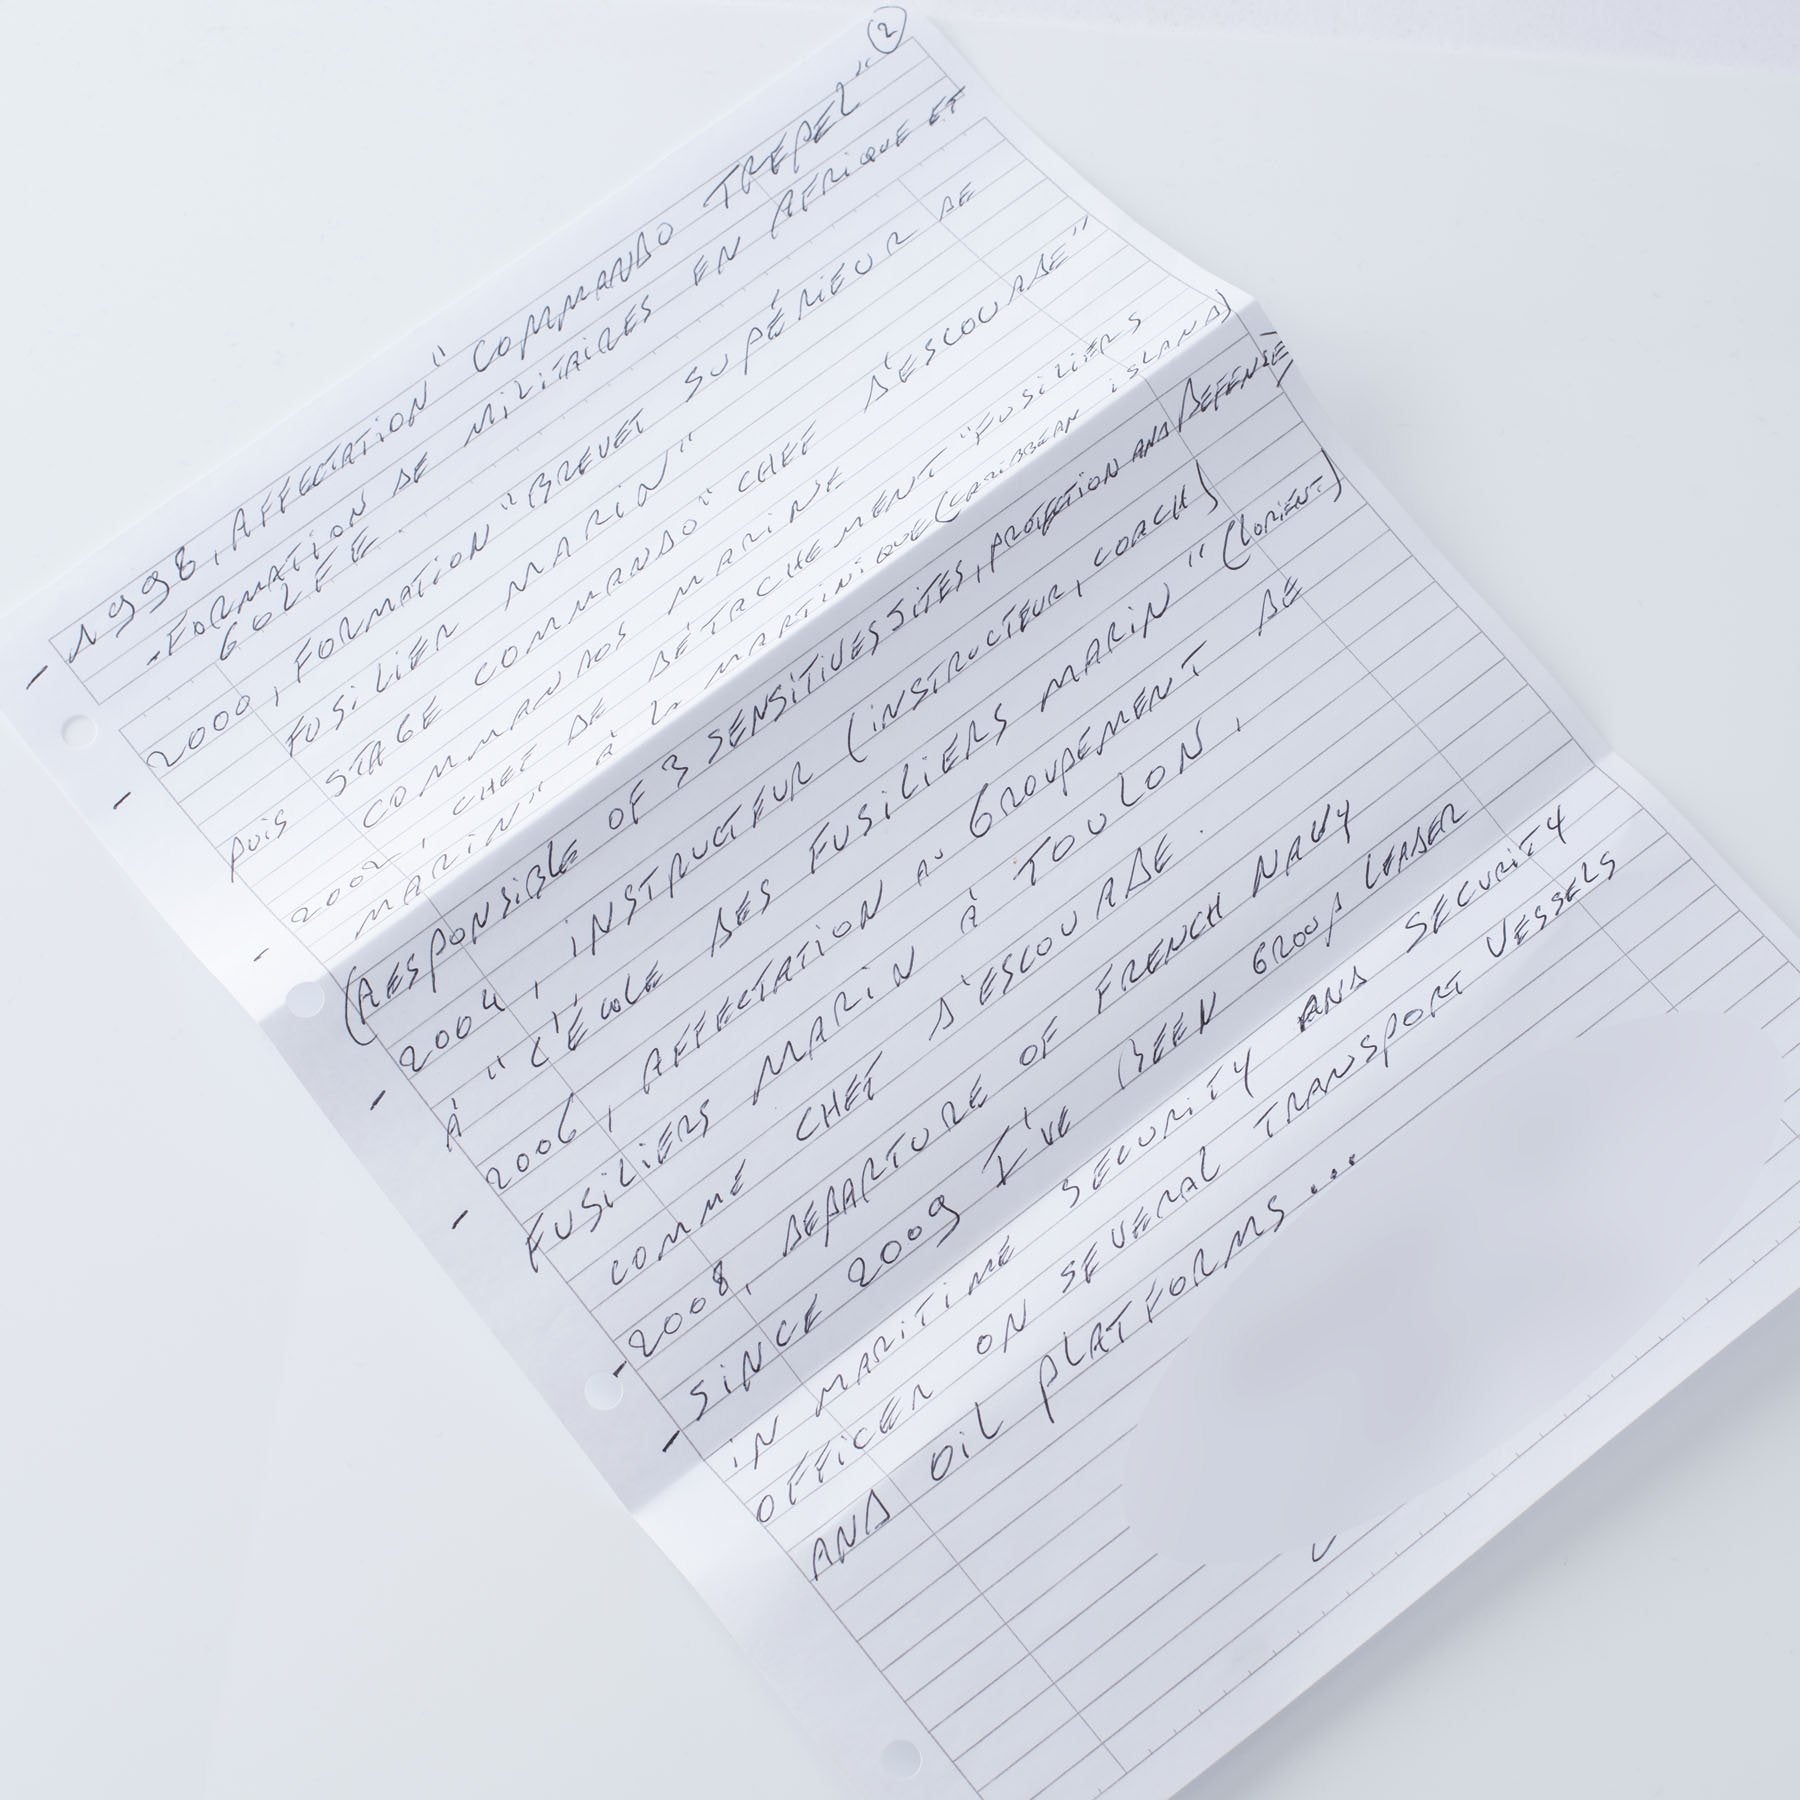 2
- 1998, AFFECTATION "COMMANDO TREPEL"
- FORMATION DE MILITAIRES EN AFRIQUE ET
GOLFE.
- 2000, FORMATION "BREVET SUPÉRIEUR DE
FUSILIER MARIN"
puis STAGE COMMANDO "CHEF D'ESCOUADE"
COMMANDOS MARINE
- 2002, CHEF DE DÉTACHEMENT "FUSILIERS
MARIN" À LA MARTINIQUE (CARIBBEAN ISLAND)
(RESPONSIBLE OF 3 SENSITIVES SITES, PROTECTION AND DEFENSE)
- 2004, INSTRUCTEUR (INSTRUCTEUR, COACH)
À "L'ÉCOLE DES FUSILIERS MARIN" (LORIENT)
- 2006, AFFECTATION AU GROUPEMENT DE
FUSILIERS MARIN À TOULON,
COMME CHEF D'ESCOUADE.
- 2008, DEPARTURE OF FRENCH NAVY
- SINCE 2009 I'VE BEEN GROUP LEADER
IN MARITIME SECURITY AND SECURITY
OFFICER ON SEVERAL TRANSPORT VESSELS
AND OIL PLATFORMS...